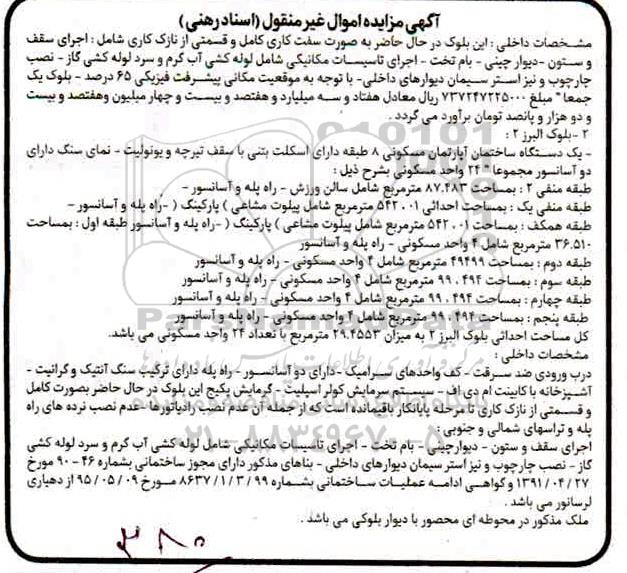 آگهی مزایده اموال غیر منقول (اسناد رهنی)
مشخصات داخلی : این بلوک در حال حاضر به صورت سفت کاری کامل و قسمتی از نازک کاری شامل : اجرای سقف
و ستون -دیوار چینی - بام تخت - اجرای تاسیسات مکانیکی شامل لوله کشی آب گرم و سرد لوله کشی گاز - نصب
چارچوب و نیز استر سیمان دیوارهای داخلی- با توجه به موقعیت مکانی پیشرفت فیزیکی ۶۵ درصد - بلوک یک
جمعا" مبلغ ۷۳۷۲۴۷۲۲۵۰۰۰ ریال معادل هفتاد و سه میلیارد و هفتصد و بیست و چهار میلیون وهفتصد و بیست
و دو هزار و پانصد تومان برآورد می گردد .
۲ - بلوک البرز ۲ :
- یک دستگاه ساختمان آپارتمان مسکونی ۸ طبقه دارای اسکلت بتنی با سقف تیرچه و یونولیت - نمای سنگ دارای
دو آسانسور مجموعا" ۲۴ واحد مسکونی بشرح ذیل :
طبقه منفی ۲ : بمساحت ۸۷.۴۸۳ مترمربع شامل سالن ورزش - راه پله و آسانسور -
طبقه منفی یک : بمساحت احداثی ۵۴۲.۰۰۱ مترمربع شامل پیلوت مشاعی ) پارکینگ ( -راه پله و آسانسور -
طبقه همکف : بمساحت ۵۴۲.۰۰۱ مترمربع شامل پیلوت مشاعی ) پارکینگ ( -راه پله و آسانسور طبقه اول : بمساحت
۳۶.۵۱۰ مترمربع شامل ۴ واحد مسکونی - راه پله و آسانسور
طبقه دوم : بمساحت ۴۹۴۹۹ مترمربع شامل ۴ واحد مسکونی - راه پله و آسانسور
طبقه سوم : بمساحت ۹۹.۴۹۴ مترمربع شامل ۴ واحد مسکونی - راه پله و آسانسور
طبقه چهارم : بمساحت ۹۹.۴۹۴ مترمربع شامل ۴ واحد مسکونی - راه پله و آسانسور
طبقه پنجم : بمساحت ۹۹.۴۹۴ مترمربع شامل ۴ واحد مسکونی - راه پله و آسانسور
کل مساحت احداثی بلوک البرز ۲ به میزان ۲۹.۴۵۵۳ مترمربع با تعداد ۲۴ واحد مسکونی می باشد.
مشخصات داخلی :
درب ورودی ضد سرقت - کف واحدهای سرامیک - دارای دو آسانسور - راه پله دارای ترکیب سنگ آنتیک و گرانیت -
آشپزخانه با کابینت ام دی اف - سیستم سرمایش کولر اسپلیت - گرمایش پکیج این بلوک در حال حاضر بصورت کامل
و قسمتی از نازک کاری تا مرحله پایانکار باقیمانده است که از جمله آن عدم نصب رادیاتورها -عدم نصب نرده های راه
پله و تراسهای شمالی و جنوبی :
اجرای سقف و ستون - دیوارچینی - بام تخت - اجرای تاسیسات مکانیکی شامل لوله کشی آب گرم و سرد لوله کشی
گاز - نصب چارچوب و نیز استر سیمان دیوارهای داخلی - بناهای مذکور دارای مجوز ساختمانی بشماره ۴۶-۹۰ مورخ
۱۳۹۱/۰۴/۲۷ و گواهی ادامه عملیات ساختمانی بشماره ۸۶۳۷/۱/۳/۹۹ مورخ ۹۵/۰۵/۰۹ از دهیاری
لرسانور می باشد .
ملک مذکور در محوطه ای محصور با دیوار بلوکی می باشد .
۳۸۰
ParsNamadData
۰۲۱-۸۸۳۴۹۶۷۰-۵